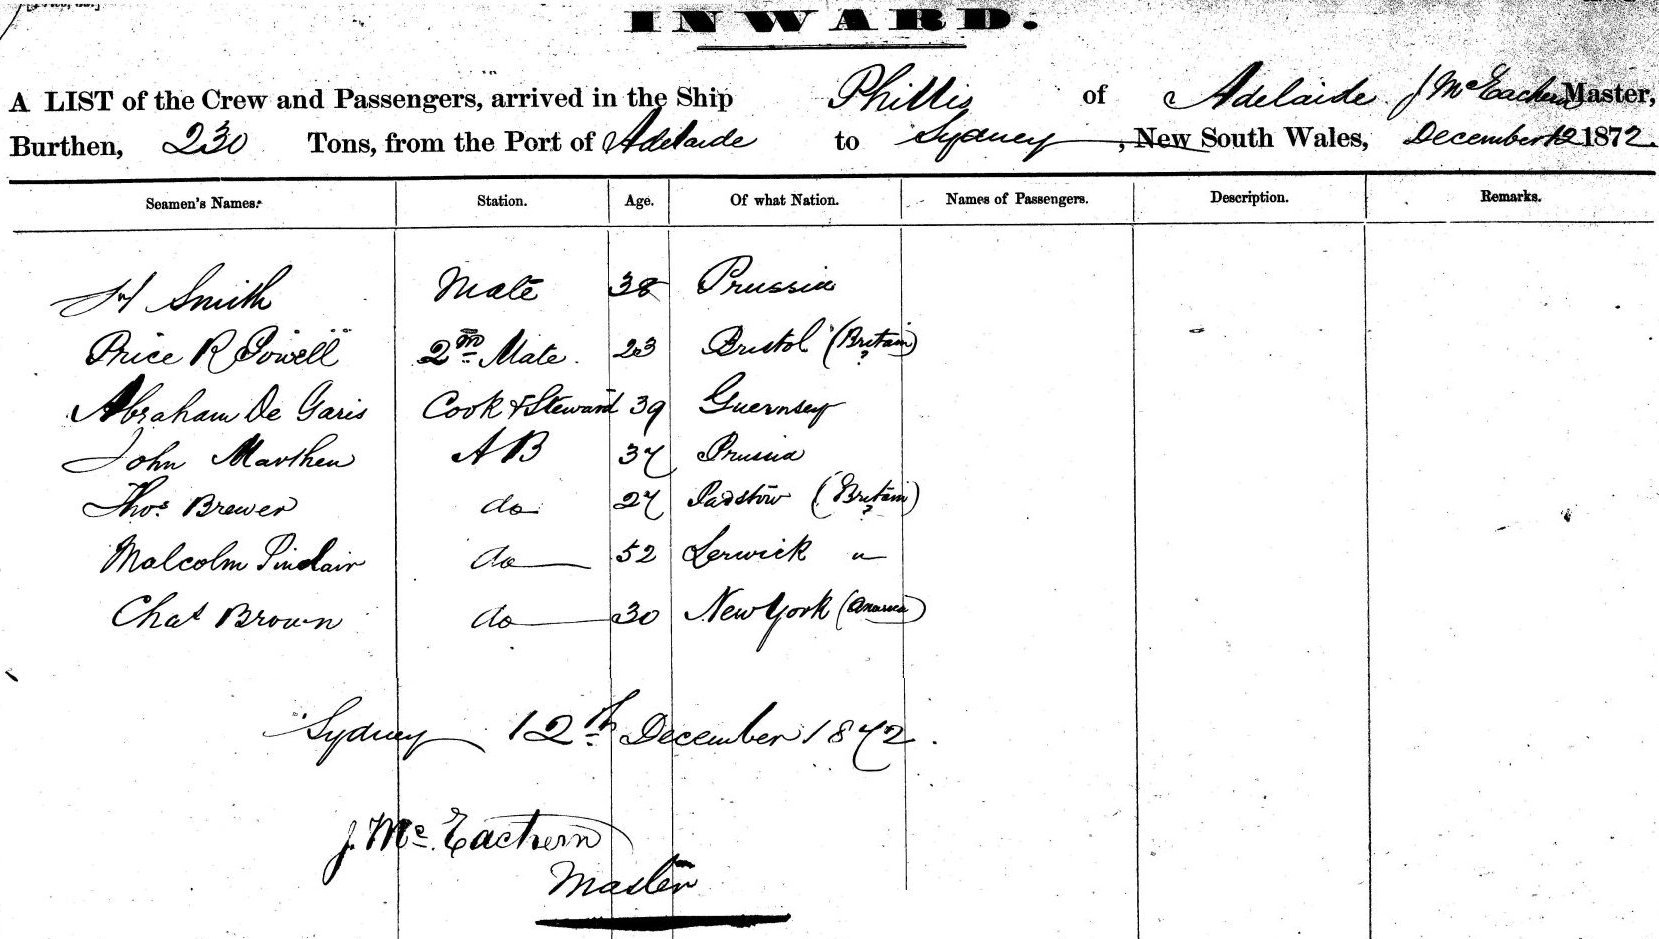 INWARD.
A LIST of the Crew and Passengers, arrived in the Ship Phillis of Adelaide J McEachern Master,
Burthen, 230 Tons, from the Port of Adelaide to Sydney, New South Wales, December 12 1872.
Seamen's Names. Station. Age. Of what Nation. Names of Passengers. Description. Remarks.
H Smith Mate 38 Prussia
Price R Powell 2nd Mate. 23 Bristol (Britain)
Abraham De Garis Cook & Steward 39 Guernsey
John Marthen A B 37 Prussia
Thos Brewer do 27 Padstow (Britain)
Malcolm Sinclair do 52 Lerwick "
Chas Brown do 30 New York (America)
Sydney 12th December 1872.
J. Mc. Eachern
Master